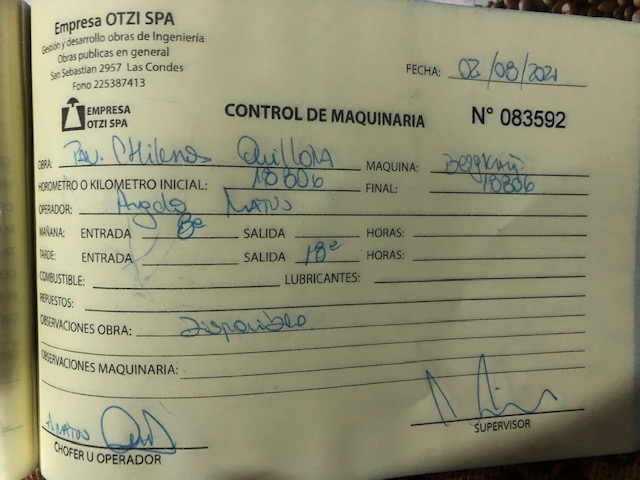 Empresa OTZI SPA
Gestión y desarrollo obras de Ingeniería
Obras publicas en general
San Sebastian 2957 Las Condes
Fono 225387413
FECHA: 03/08/2021
EMPRESA
OTZI SPA
CONTROL DE MAQUINARIA N° 083592
OBRA: Pav. Chilenos Quillota MAQUINA:
HOROMETRO O KILOMETRO INICIAL: 18806 FINAL: 18806
OPERADOR: Hugo
MAÑANA: ENTRADA 8º SALIDA HORAS:
TARDE: ENTRADA SALIDA 18º HORAS:
COMBUSTIBLE: LUBRICANTES:
REPUESTOS:
OBSERVACIONES OBRA: Disponible
OBSERVACIONES MAQUINARIA:
CHOFER U OPERADOR SUPERVISOR